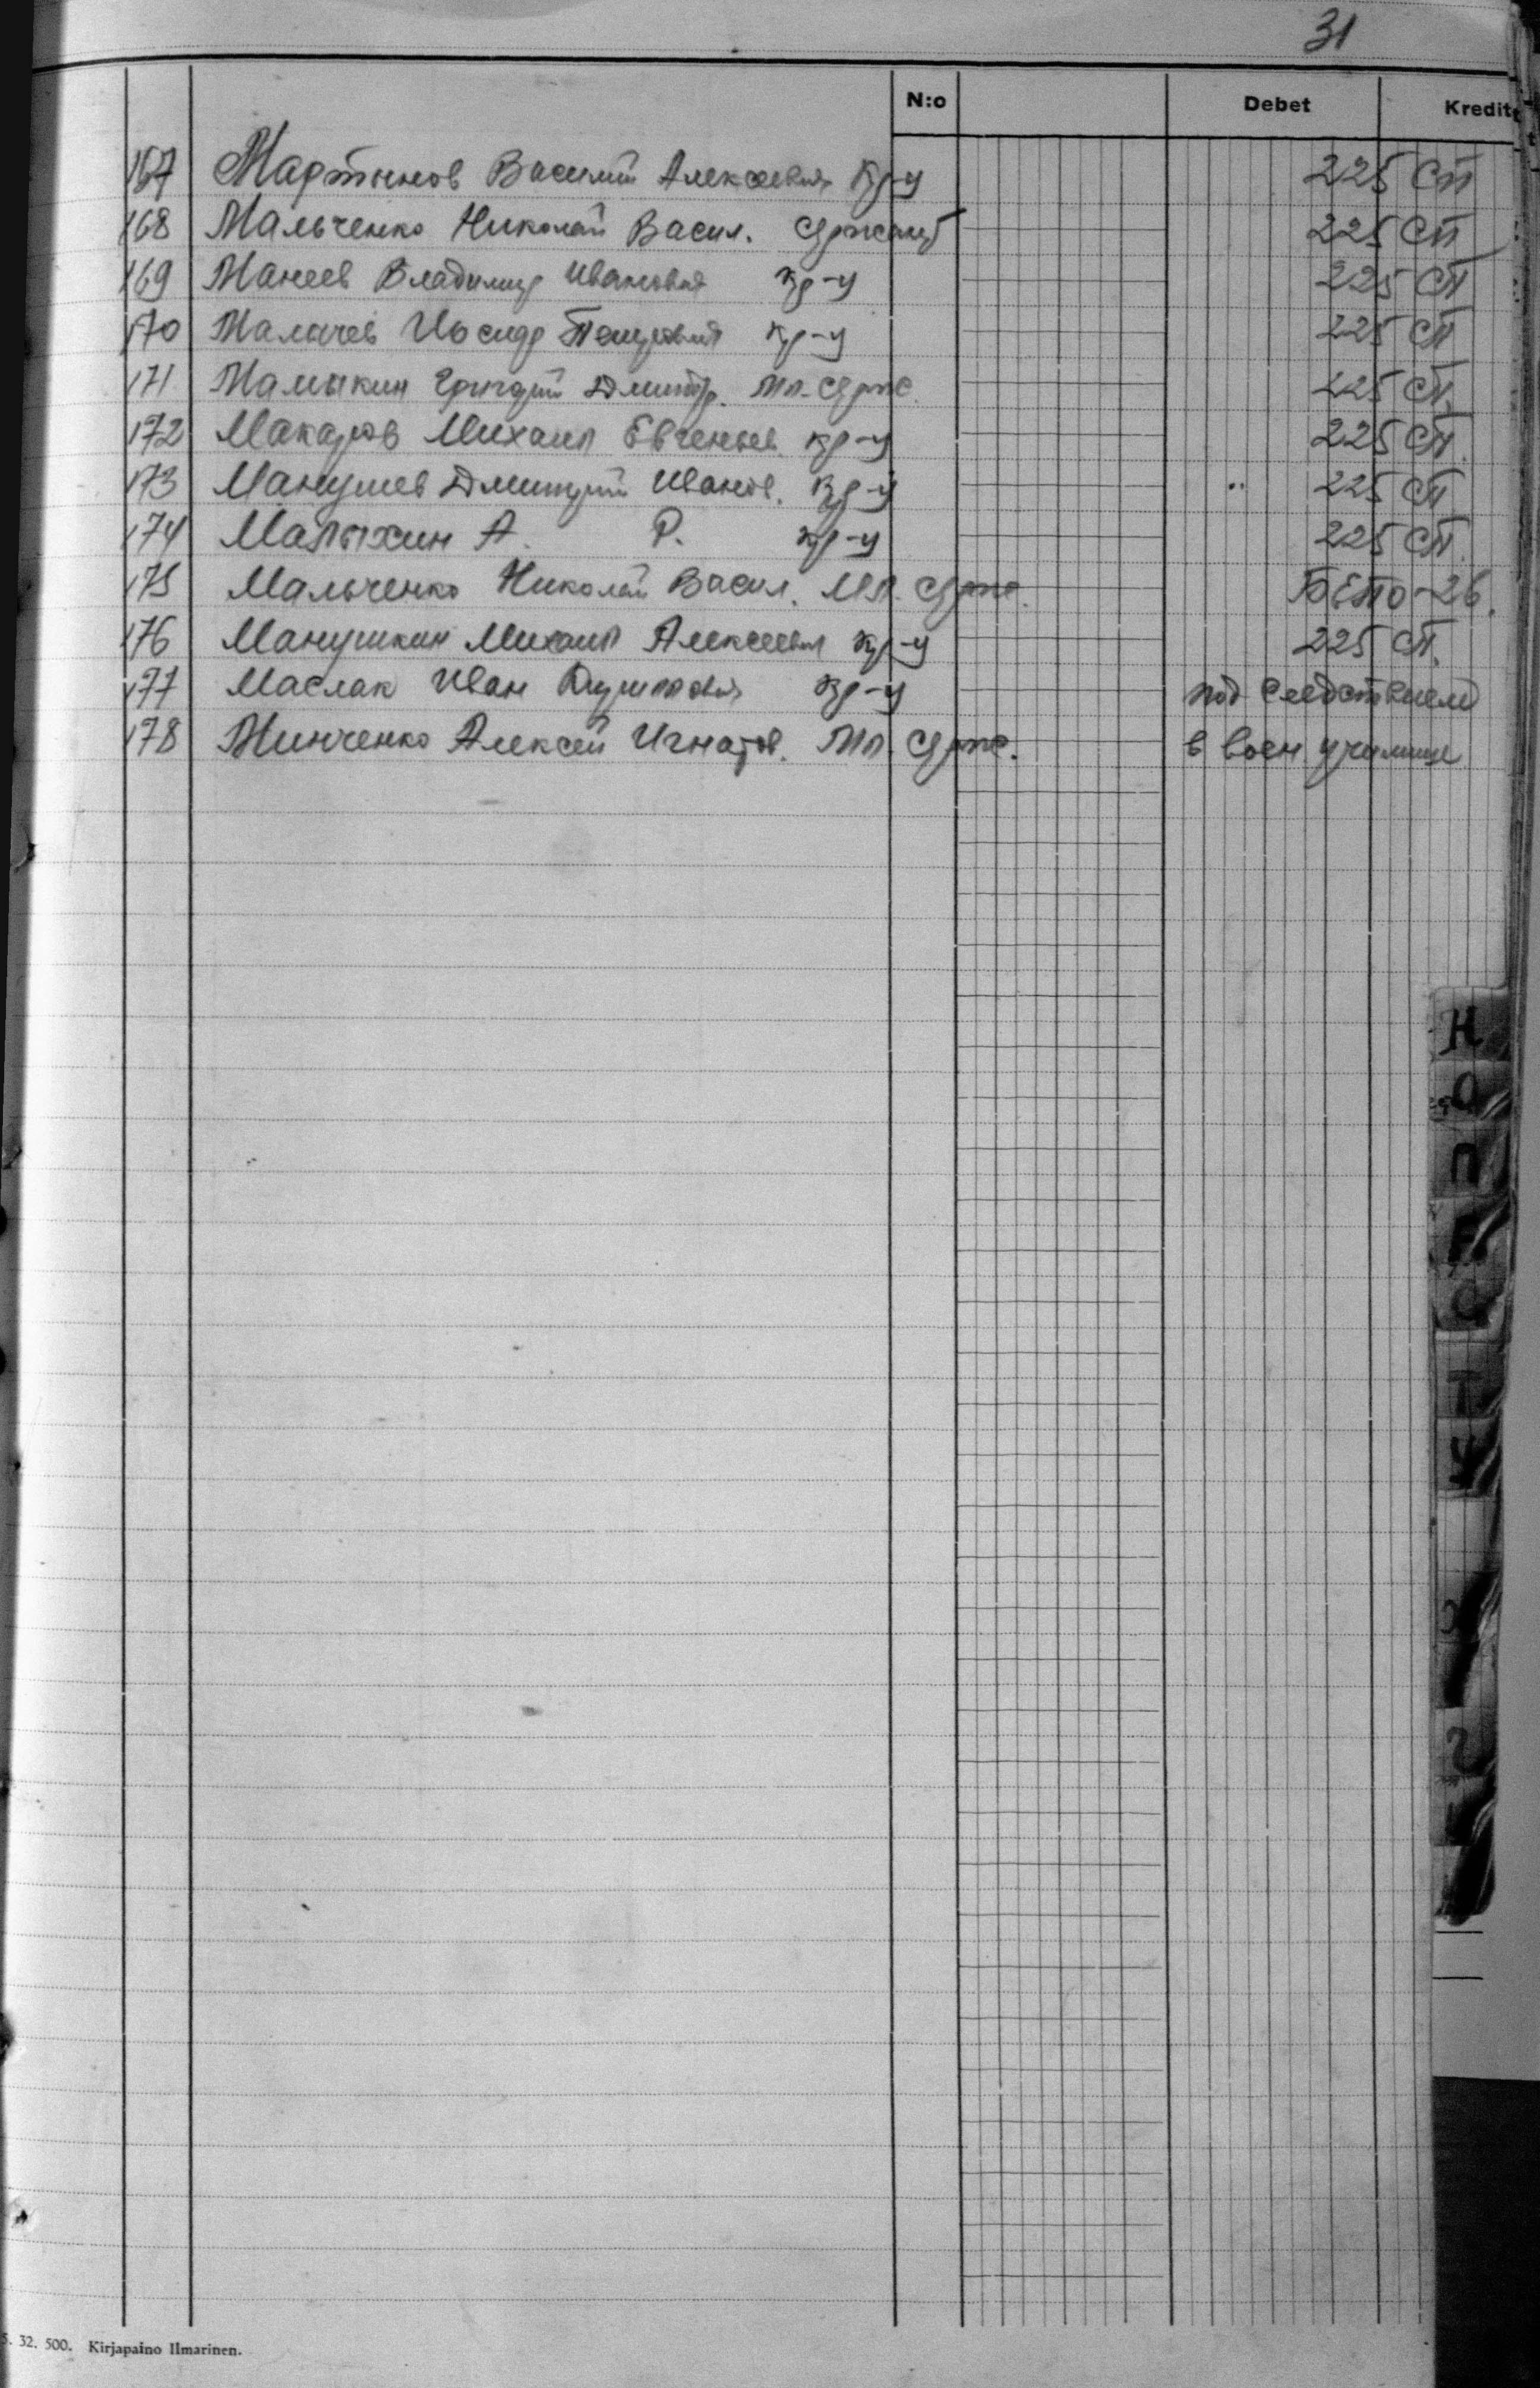 31
N:o Debet Kredit
167 Мартынов Василий Алексеевич Кр-ц 225 СП
168 Мальченко Николай Васил. Сержант 225 СП
169 Манеев Владимир Иванович Кр-ц 225 СП
170 Малычев Петрович Кр-ц 225 СП
171 Мамыкин Дмитр. Мл. Серж. 225 СП.
172 Макаров Михаил Евгеньев. Кр-ц 225 СП.
173 Манушев Дмитрий Иванов. Кр-ц 225 СП
174 Малыхин А. Р. Кр-ц 225 СП.
175 Мальченко Николай Васил. Мл. Серж. БЕПО-26.
176 Манушкин Михаил Алексеевич Кр-ц 225 СП.
177 Маслак Иван Кр-ц под следствием
178 Минченко Алексей Игнатов. Мл. Серж. в воен. училище
Н
О
П
Р
С
Т
У
5. 32. 500. Kirjapaino Ilmarinen.